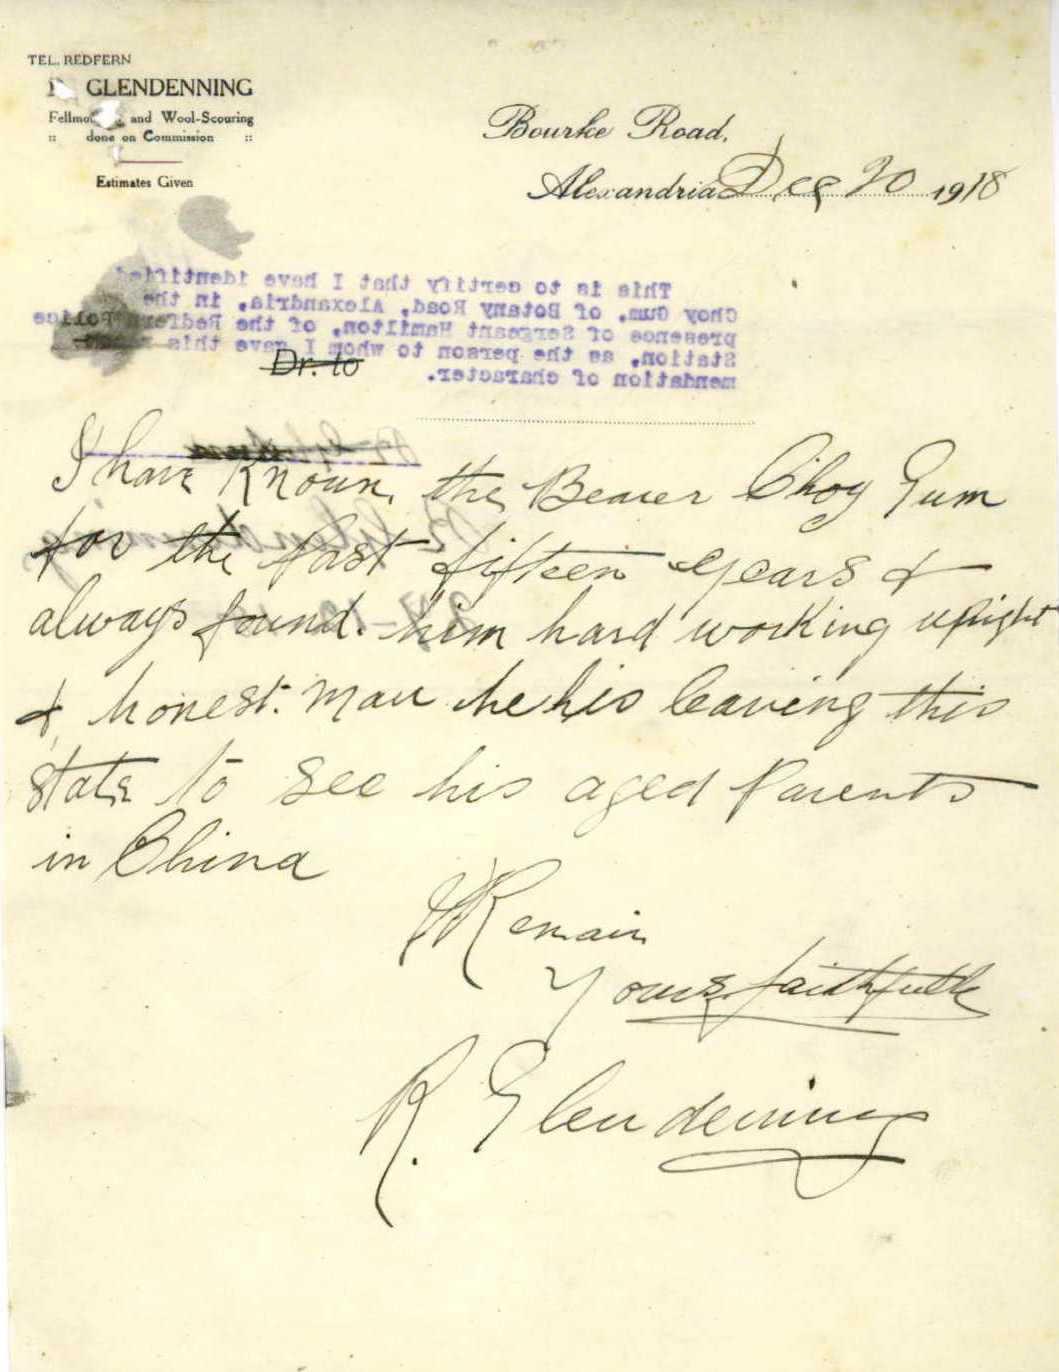 TEL. REDFERN
GLENDENNING
and Wool-Scouring
:: done on Commission ::
Estimates Given
Bourke Road,
Alexandria Dec 20 1918
This is to certify that I have identified
Choy Gum, of Botany Road, Alexandria, in the
presence of Sergeant Hamilton, of the Redfern Police
Station, as the person to whom I gave this
mendation of character.
Dr. to
I have Known the Bearer Choy Gum
R Glendenning
for the past fifteen years &
always found him hard working upright
& honest man he his leaving this
state to see his aged Parents
in China
I Remain
Yours faithfully
R. Glendenning